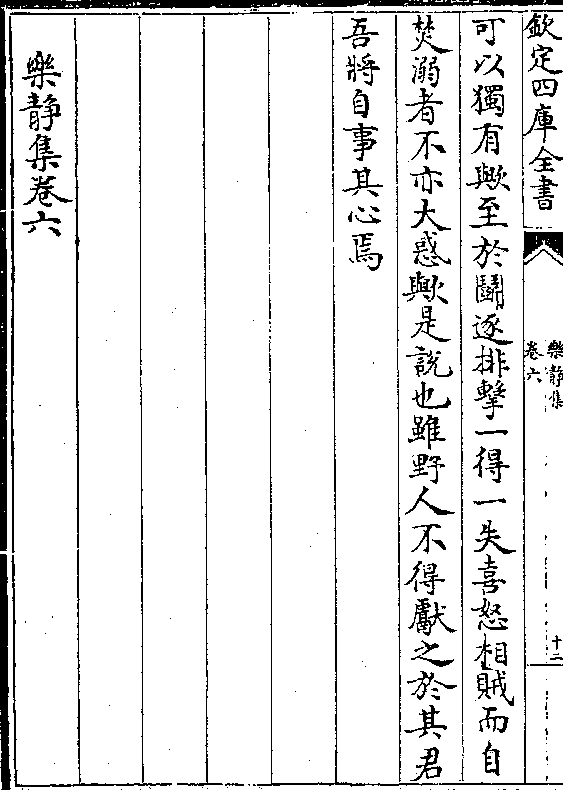 欽定四庫全書
樂靜集
卷六
十二
可以獨有歟至於鬬逐排擊一得一失喜怒相賊而自
焚溺者不亦大惑歟是說也雖野人不得獻之於其君
吾將自事其心焉
樂静集卷六